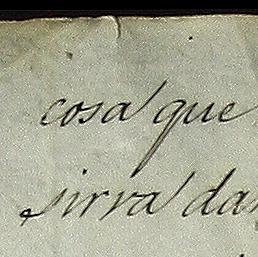 cosa que
sirva dar